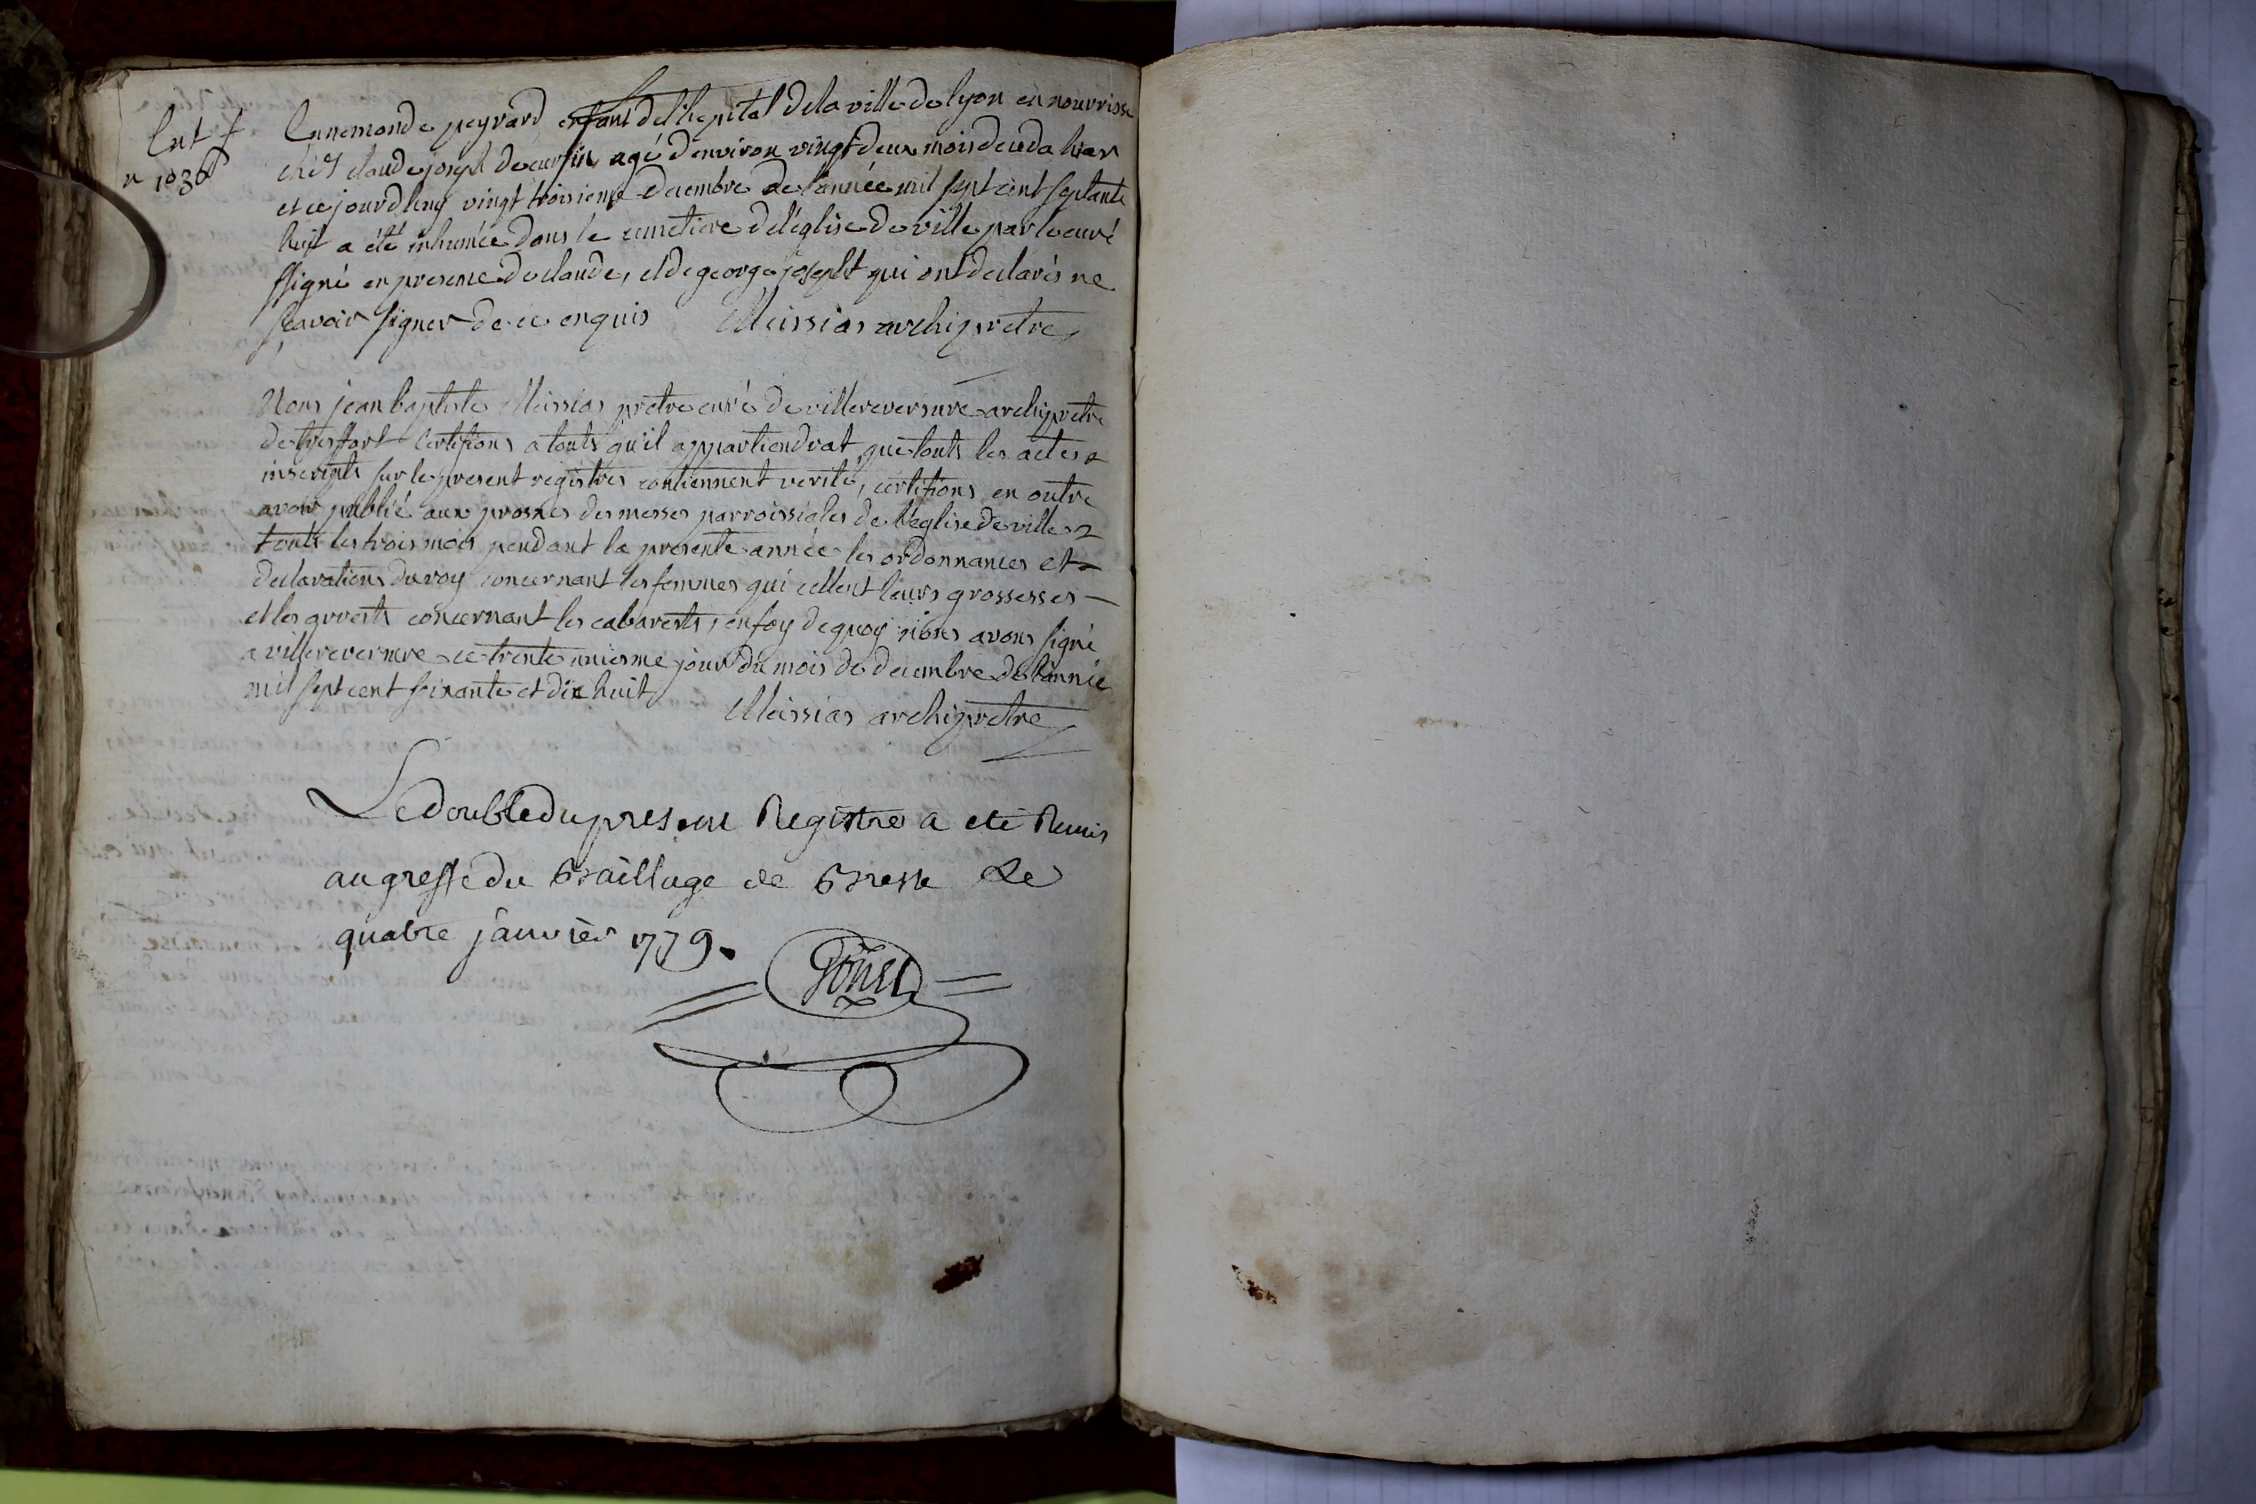 Ent f
n 1036
Ennemonde peyrard enfant de l'hopital de la ville de lyon en nourrisse
chés claude joseph de cursin agé d'environ vingt deux mois deceda hier
et ce jourdhuy vingt troisieme decembre de l'année mil sept cent septante
huit a été inhumée dans le cimetiere de l'église de ville par le curé
ssigné en presence de claude, et de george joseph qui ont declarés ne
sçavoir signer de ce enquis Messias archipretre
Nous jean baptiste Messias pretre curé de villereversure archipretre
de treffort certifions a touts qu'il appartiendrat que touts les actes
inscripts sur le present registres contiennent verité, certifions en outre
avoir publié aux prosnes des messes parroissiales de l'eglise de ville
touts les trois mois pendant la presente année les ordonnances et
declarations du roy concernant les femmes qui cellent leurs grossesses
et les arrests concernant les cabarests, en foy de quoy nous avons signé
a villereversure ce trente uniesme jour du mois de decembre de l'année
mil sept cent soixante et dix huit
Messias archipretre
Le double du present Registre a eté Remis
au greffe du Bailliage de Bresse Le
quatre janvier 1779.